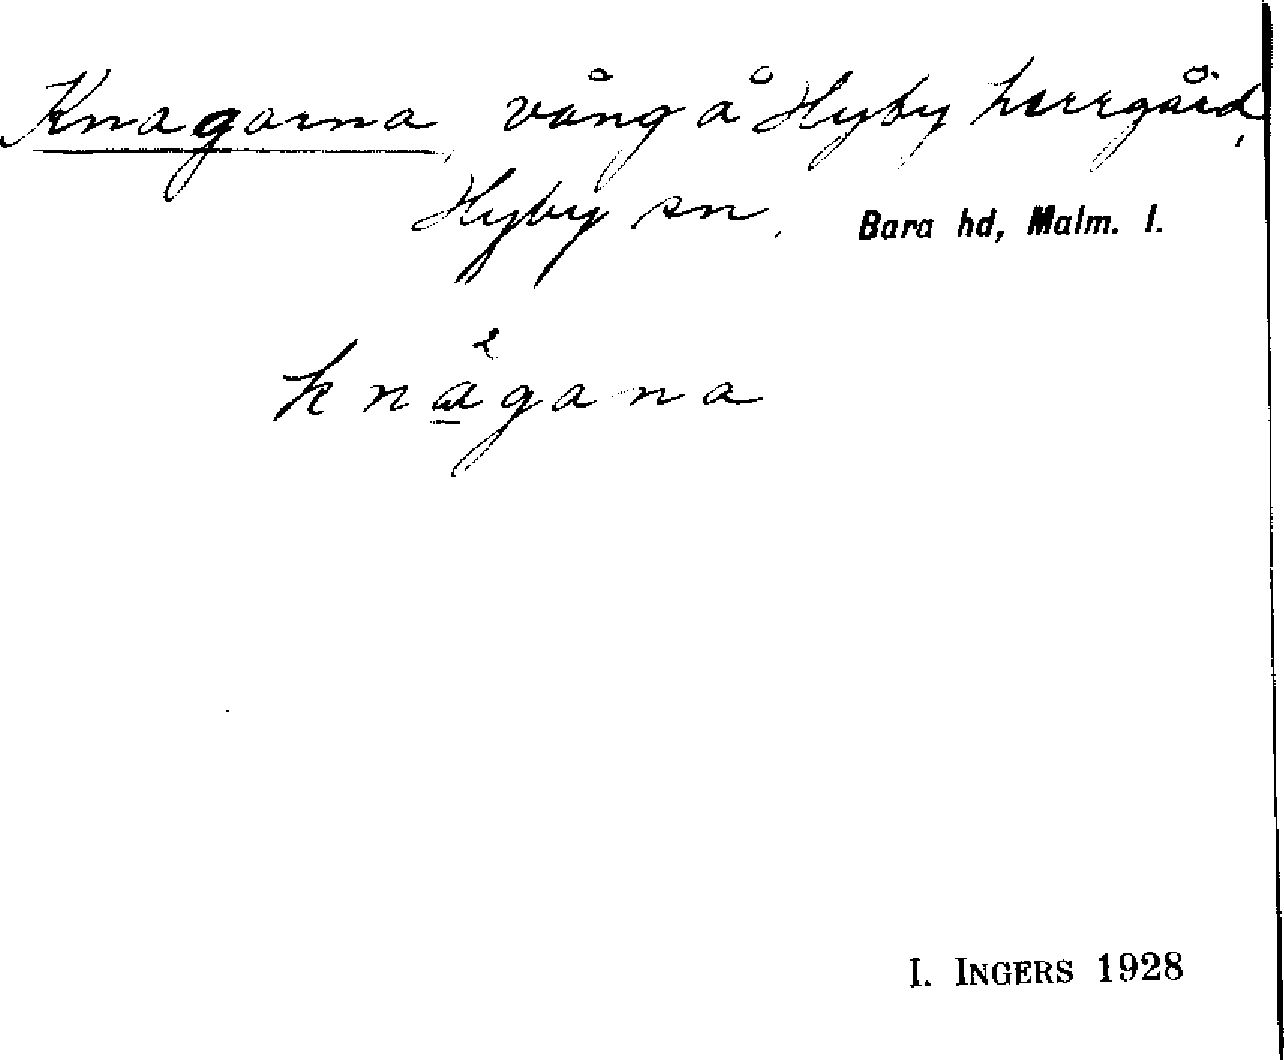 Knagarna, vång å Hyby herrgård,
Hyby sn, Bara hd, Malm. l.
knågana
I. INGERS 1928